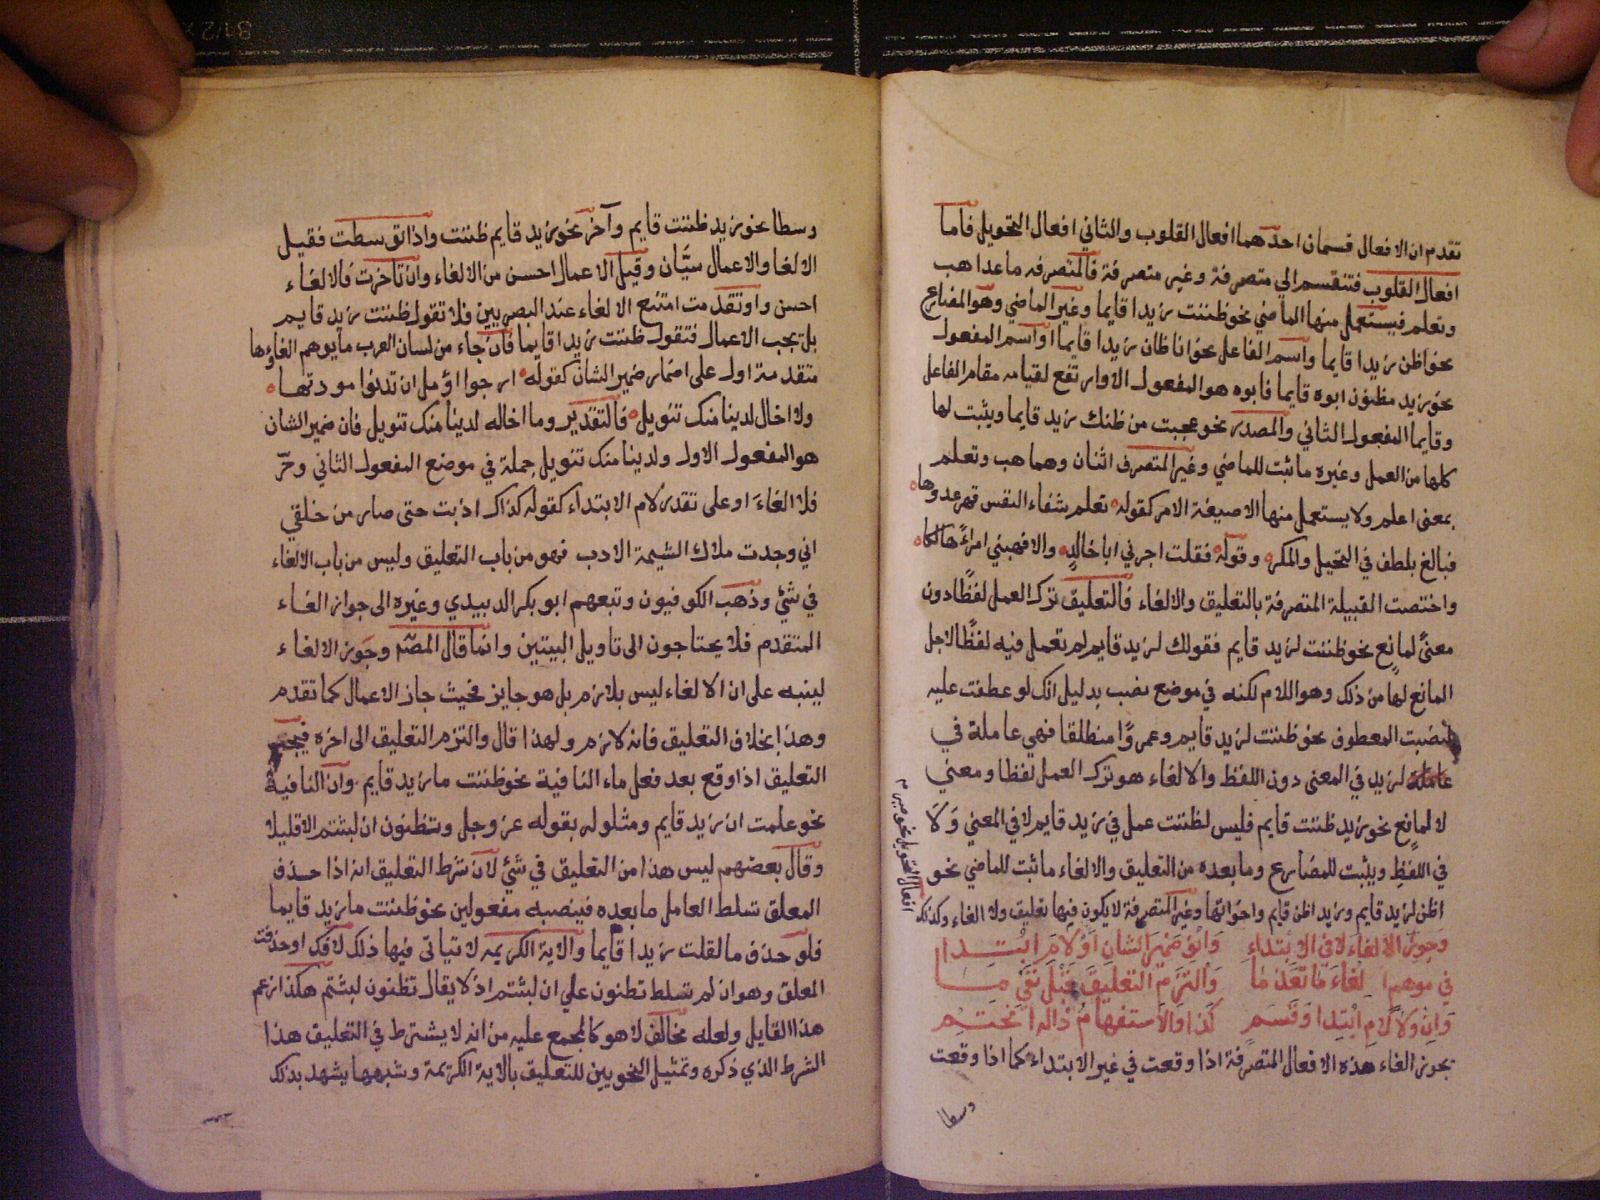 تقدم ان الافعال قسمان احدهما افعال القلوب والثاني افعال التحويل فاما
افعال القلوب فتنقسم الي متصرفة وغير متصرفة فالمتصرفه ماعدا هب
وتعلم فيستعمل منها الماضي نحو ظننت زيدا قايما وغير الماضي وهو المضارع
نحو اظن زيدا قايما واسم الفاعل نحو انا ظان زيدا قايما او اسم المفعول
نحو زيد مظنون ابوه قايما فابوه هو المفعول الاول ارتفع لقيامه مقام الفاعل
وقايما المفعول الثاني والمصدر نحو عجبت من ظنك زيد قايما ويثبت لها
كلها من العمل وغيره ما ثبت للماضي وغير المتصرف اثنان وهما هب وتعلم
بمعنى اعلم ولا يستعمل منها الا صيغة الامر كقوله تعلم شفاء النفس قهر عدوها
فبالغ بلطف في التحيل والمكر وقوله فقلت اجرني ابا خالد والا فهبني امراً هالكا
واختصت القبيلة المتصرفة بالتعليق والالغاء فالتعليق ترك العمل لفظًا دون
معنىً لمانع نحو ظننت لزيد قايم فقولك لزيد قايم لم تعمل فيه لفظًا لاجل
المانع لها من ذلك وهو اللام لكنه في موضع نصب بدليل انك لو عطفت عليه
لنصبت المعطوف نحو ظننت لزيد قايم وعمروًا منطلقا فهي عاملة في
عاملة لزيد في المعنى دون اللفظ والالغاء هو ترك العمل لفظا ومعني
لا لمانع نحو زيد ظننت قايم فليس لظننت عمل في زيد قايم لا في المعني ولا
في اللفظ ويثبت للمضارع وما بعده من التعليق والالغاء ما ثبت للماضي نحو
اظن لزيد قايم وزيد اظن قايم واخواتها وغير المتصرفة لا يكون فيها تعليق ولا الغاء وكذلك
افعال التحويل نحو صير
وجوز الالغاء لا في الابتداء وانو ضمير الشان او لام ابتدا
في موهم الغاء ما تقدما والتزم التعليق قبل نفي ما
وان ولا لام ابتدا وقسم كذا والاستفهام ذا له انحتم
يجوز الغاء هذه الافعال المتصرفة اذا وقعت في غير الابتداء كما اذا وقعت
وسطا
وسطا نحو زيد ظننت قايم وآخر نحو زيد قايم ظننت واذا توسطت فقيل
الالغا والاعمال سيّان وقيل الاعمال احسن من الالغاء وان تاخرت فالالغاء
احسن وان تقدمت امتنع الالغاء عند البصريين فلا تقول ظننت زيد قايم
بل يجب الاعمال فتقول ظننت زيدا قايما فان جاء من لسان العرب ما يوهم الغاوها
متقدمة اول على اضمار ضمير الشان كقوله ارجوا اؤمل ان تدنوا مودتها
ولا اخال لدينا منك تنويل فالتقدير وما اخاله لدينا منك تنويل فان ضمير الشان
هو المفعول الاول ولدينا منك تنويل جملة في موضع المفعول الثاني وحرّ
فلا الغاءَ او على تقدير لام الابتداء كقوله كذاك ادبت حتى صار من خلقي
اني وجدت ملاك الشيمة الادب فهو من باب التعليق وليس من باب الالغاء
في شئ وذهب الكوفيون وتبعهم ابو بكر الدبيدي وغيره الى جواز الغاء
المتقدم فلا يحتاجون الى تاويل البيتين وانما قال المصّ وجَوز الالغاء
لينبه على ان الالغاء ليس بلازم بل هو جايز فحيث جاز الاعمال كما تقدم
وهذا بخلاف التعليق فانه لازم ولهذا قال والتزم التعليق الى اخره فيجب
التعليق اذا وقع بعد فعل ماء النافية نحو ظننت ما زيد قايم وان النافية
نحو علمت ان زيد قايم ومثلوا له بقوله عز وجل وتظنون ان لبثتم الا قليلا
وقال بعضهم ليس هذا من التعليق في شئ لان شرط التعليق انه اذا حذف
المعلق تسلط العامل ما بعده فينصبه مفعولين نحو ظننت ما زيد قايما
فلو حذف ما لقلت زيدا قايما والاية الكريمه لا تياتى فيها ذلك لانك لو حذفت
المعلق وهو ان لم تسلط تظنون علي ان لبثتم اذ لا يقال تظنون لبثتم هكذا زعم
هذا القايل ولعله مخالف لا هو كالمجمع عليه من انه لا يشترط في التعليق هذا
الشرط الذي ذكره وتمثيل النحويين للتعليق بالاية الكريمة وشبهها يشهد بذلك